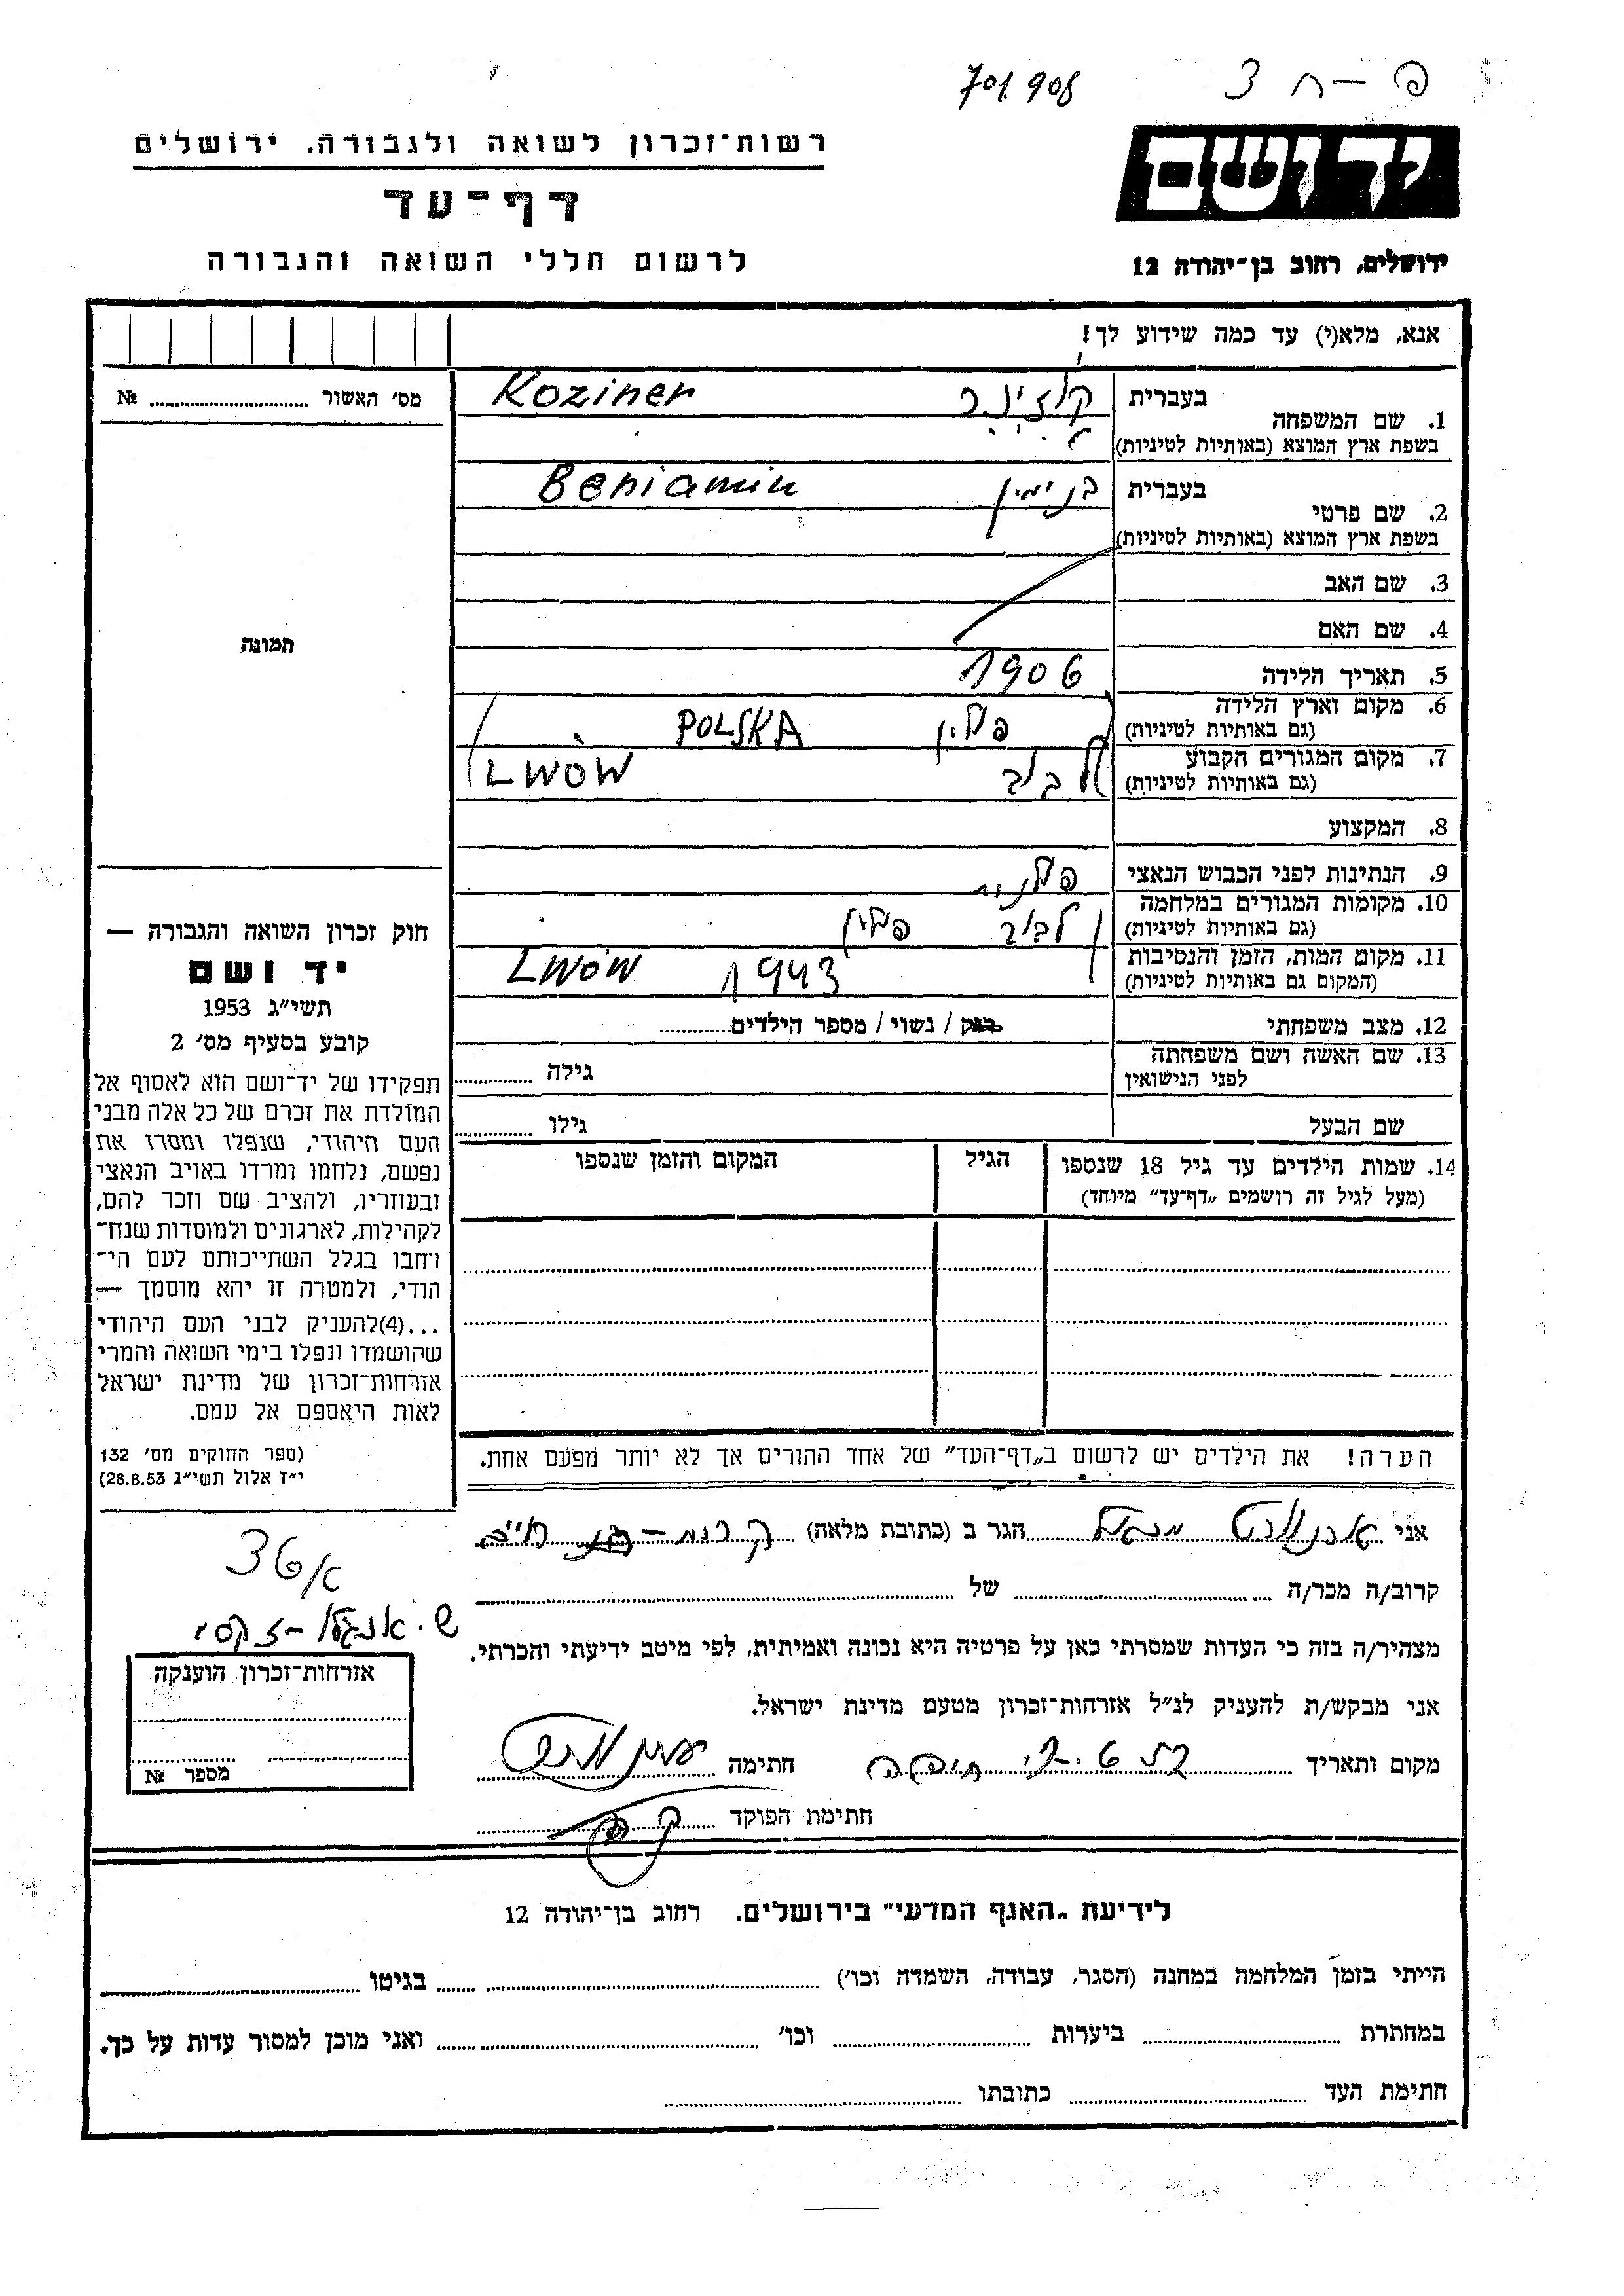 701908 פ - ח 3
יד ושם
רשות־זכרון לשואה ולגבורה. ירושלים
דף־עד
לרשום חללי השואה והגבורה
ירושלים, רחוב בן־יהודה 12
אנא, מלא(י) עד כמה שידוע לך!
מס׳ האשור № 
1. שם המשפחה
בעברית קוזינר Koziner
בשפת ארץ המוצא (באותיות לטיניות)
2. שם פרטי
בעברית בנימין Beniamin
בשפת ארץ המוצא (באותיות לטיניות)
3. שם האב
4. שם האם
תמונה
5. תאריך הלידה 1906
6. מקום וארץ הלידה פולין POLSKA
(גם באותיות לטיניות)
7. מקום המגורים הקבוע לבוב LWÓW
(גם באותיות לטיניות)
8. המקצוע
9. הנתינות לפני הכבוש הנאצי פולנית
10. מקומות המגורים במלחמה לבוב פולין
(גם באותיות לטיניות)
11. מקום המות, הזמן והנסיבות 1943 LWÓW
(המקום גם באותיות לטיניות)
12. מצב משפחתי רווק / נשוי / מספר הילדים
13. שם האשה ושם משפחתה
לפני הנישואין
גילה
שם הבעל גילו
14. שמות הילדים עד גיל 18 שנספו
(מעל לגיל זה רושמים „דף־עד” מיוחד)
הגיל
המקום והזמן שנספו
חוק זכרון השואה והגבורה —
יד ושם
תשי״ג 1953
קובע בסעיף מס׳ 2
תפקידו של יד־ושם הוא לאסוף אל
המולדת את זכרם של כל אלה מבני
העם היהודי, שנפלו ומסרו את
נפשם, נלחמו ומרדו באויב הנאצי
ובעוזריו, ולהציב שם וזכר להם,
לקהילות, לארגונים ולמוסדות שנח־
רחבו בגלל השתייכותם לעם הי־
הודי, ולמטרה זו יהא מוסמך —
...(4)להעניק לבני העם היהודי
שהושמדו ונפלו בימי השואה והמרי
אזרחות־זכרון של מדינת ישראל
לאות היאספם אל עמם.
(ספר החוקים מס׳ 132
י״ז אלול תשי״ג 28.8.53)
הערה! את הילדים יש לרשום ב„דף־העד” של אחד ההורים אך לא יותר מפעם אחת.
אני הגר ב (כתובת מלאה)
קרוב/ה מכר/ה של
מצהיר/ה בזה כי העדות שמסרתי כאן על פרטיה היא נכונה ואמיתית, לפי מיטב ידיעתי והכרתי.
אני מבקש/ת להעניק לנ״ל אזרחות־זכרון מטעם מדינת ישראל.
מקום ותאריך חיפה חתימה
חתימת הפוקד
אזרחות־זכרון הוענקה
מספר №
לידיעת „האגף המדעי” בירושלים. רחוב בן־יהודה 12
הייתי בזמן המלחמה במחנה (הסגר, עבודה, השמדה וכו׳) בגיטו
במחתרת ביערות וכו׳ ואני מוכן למסור עדות על כך.
חתימת העד כתובתו